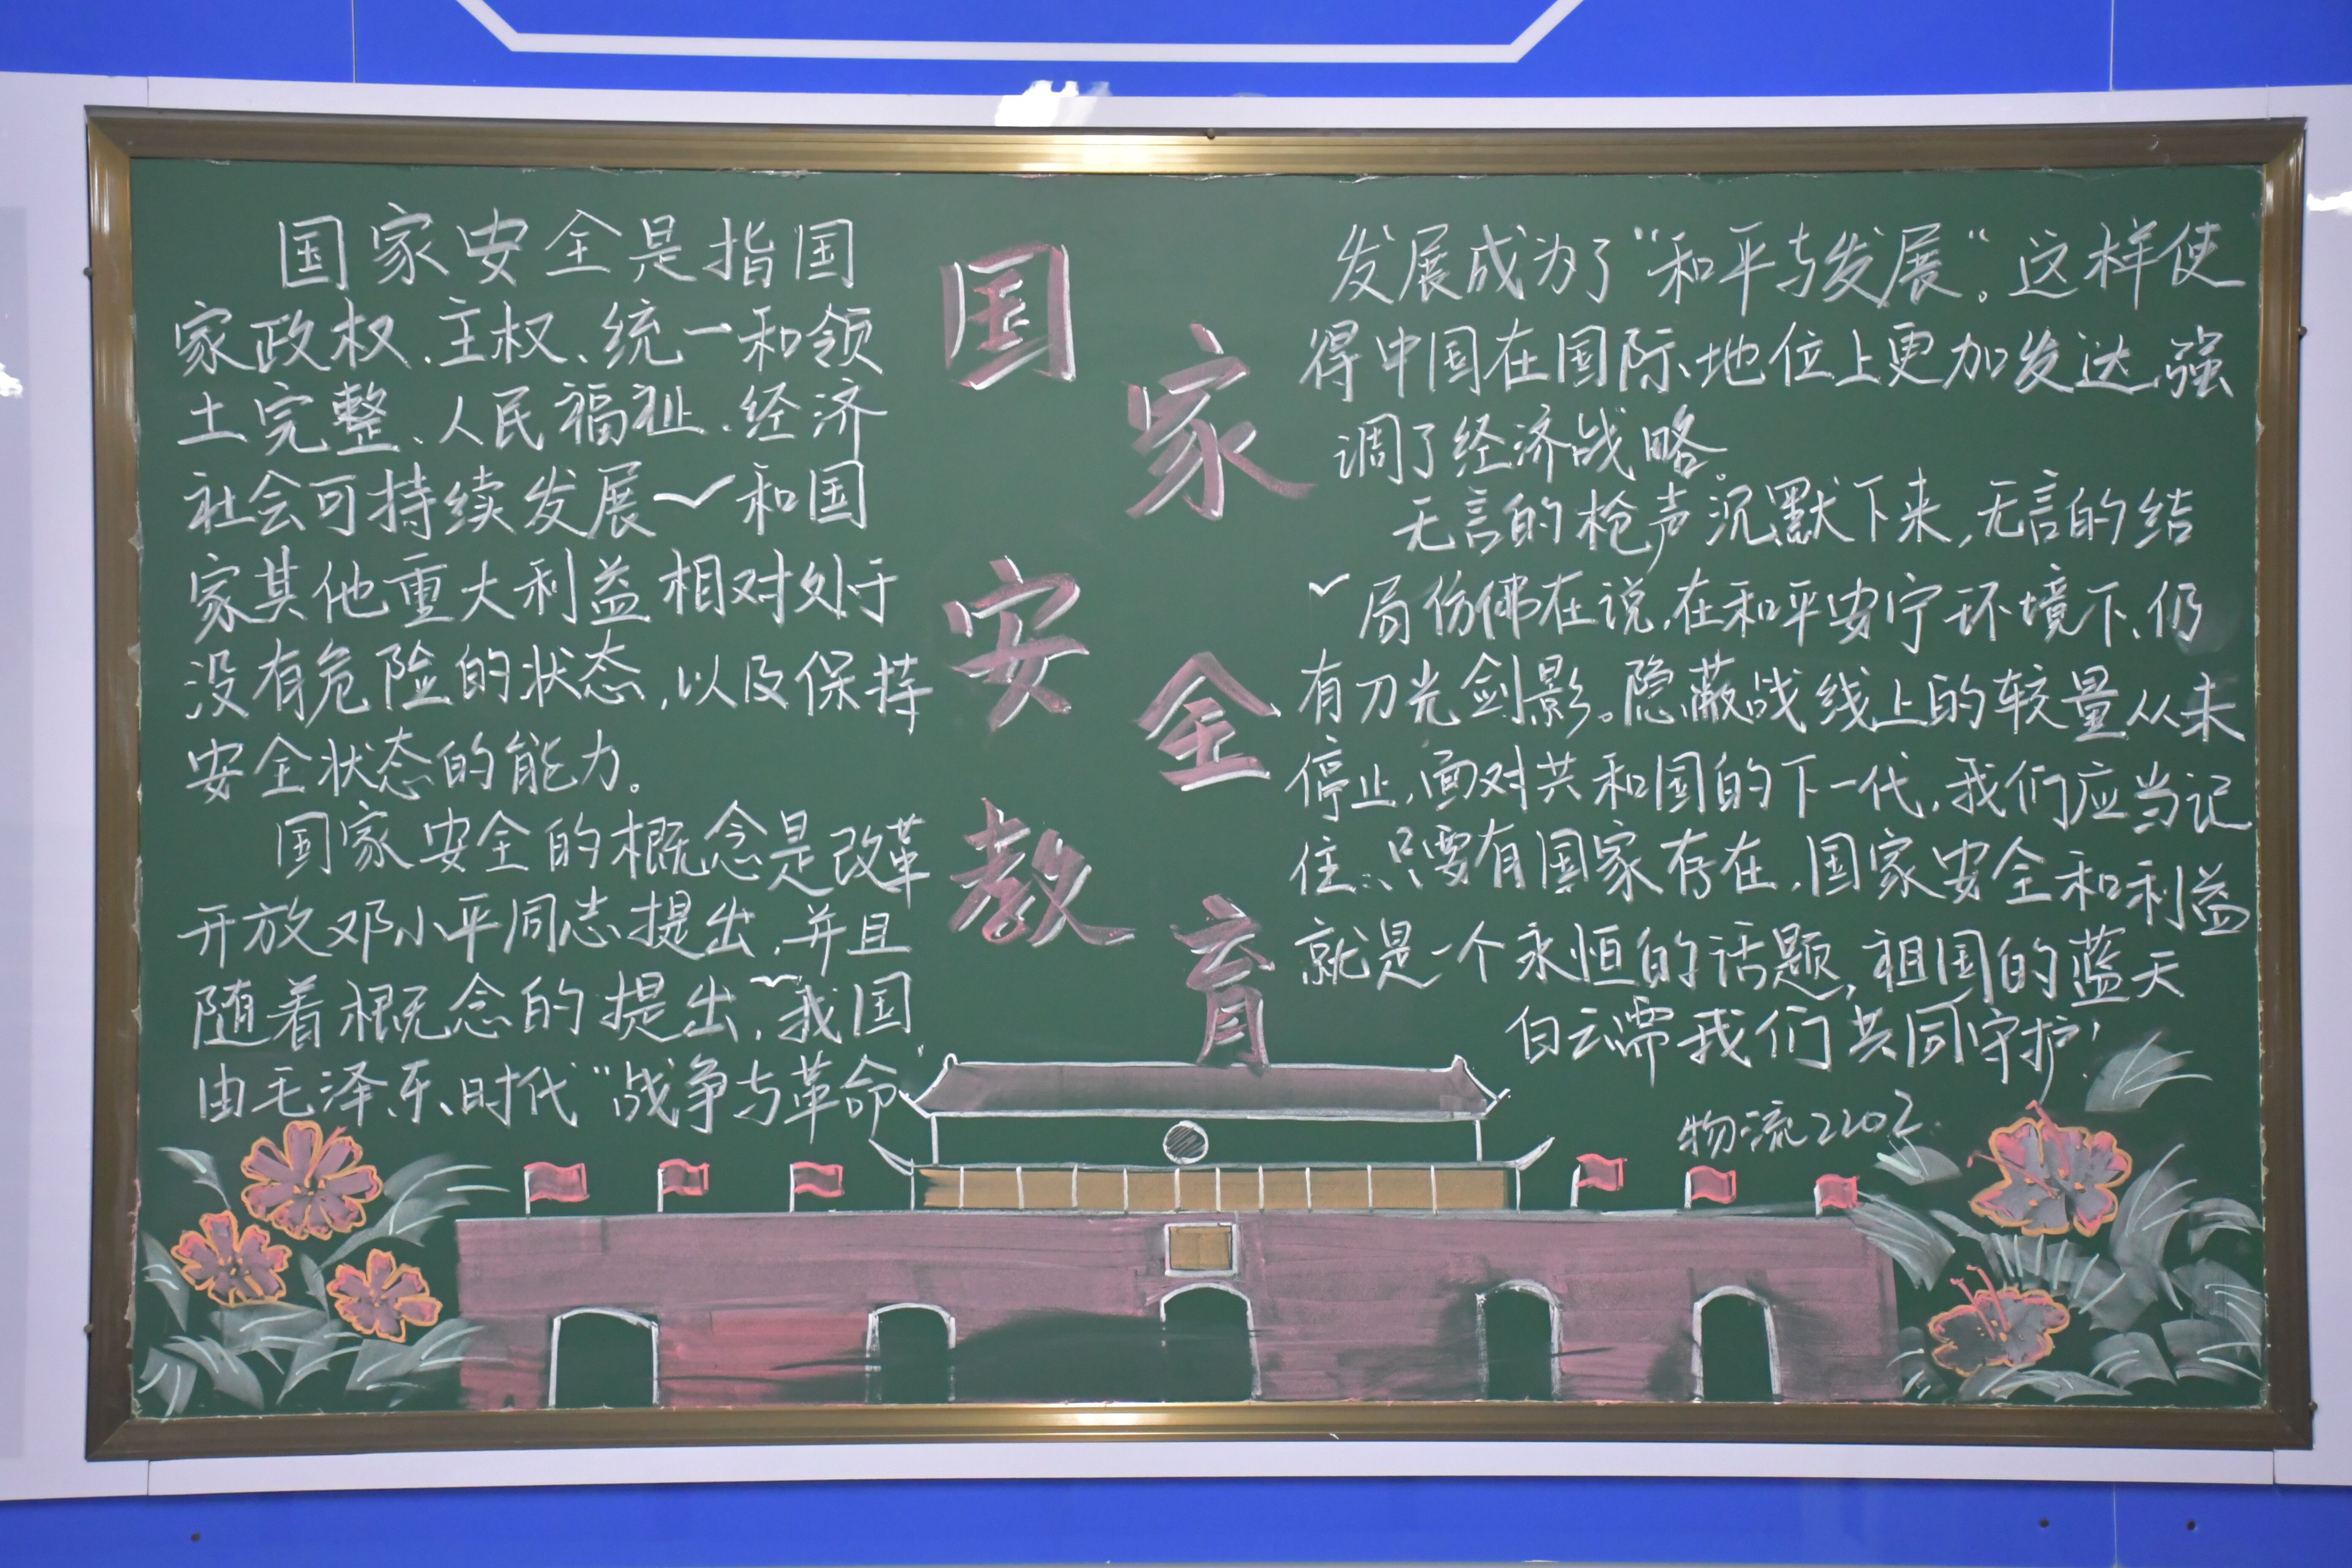 国家安全是指国
家政权、主权、统一和领
土完整、人民福祉、经济
社会可持续发展和国
家其他重大利益相对处于
没有危险的状态,以及保持
安全状态的能力。
国家安全的概念是改革
开放邓小平同志提出,并且
随着概念的提出,我国
由毛泽东时代“战争与革命”
国家安全教育
发展成为了“和平与发展”。这样使
得中国在国际地位上更加发达,强
调了经济战略。
无言的枪声沉默下来,无言的结
局仿佛在说,在和平安宁环境下,仍
有刀光剑影。隐蔽战线上的较量从未
停止,面对共和国的下一代,我们应当记
住:只要有国家存在,国家安全和利益
就是一个永恒的话题,祖国的蓝天
白云需我们共同守护!
物流2202